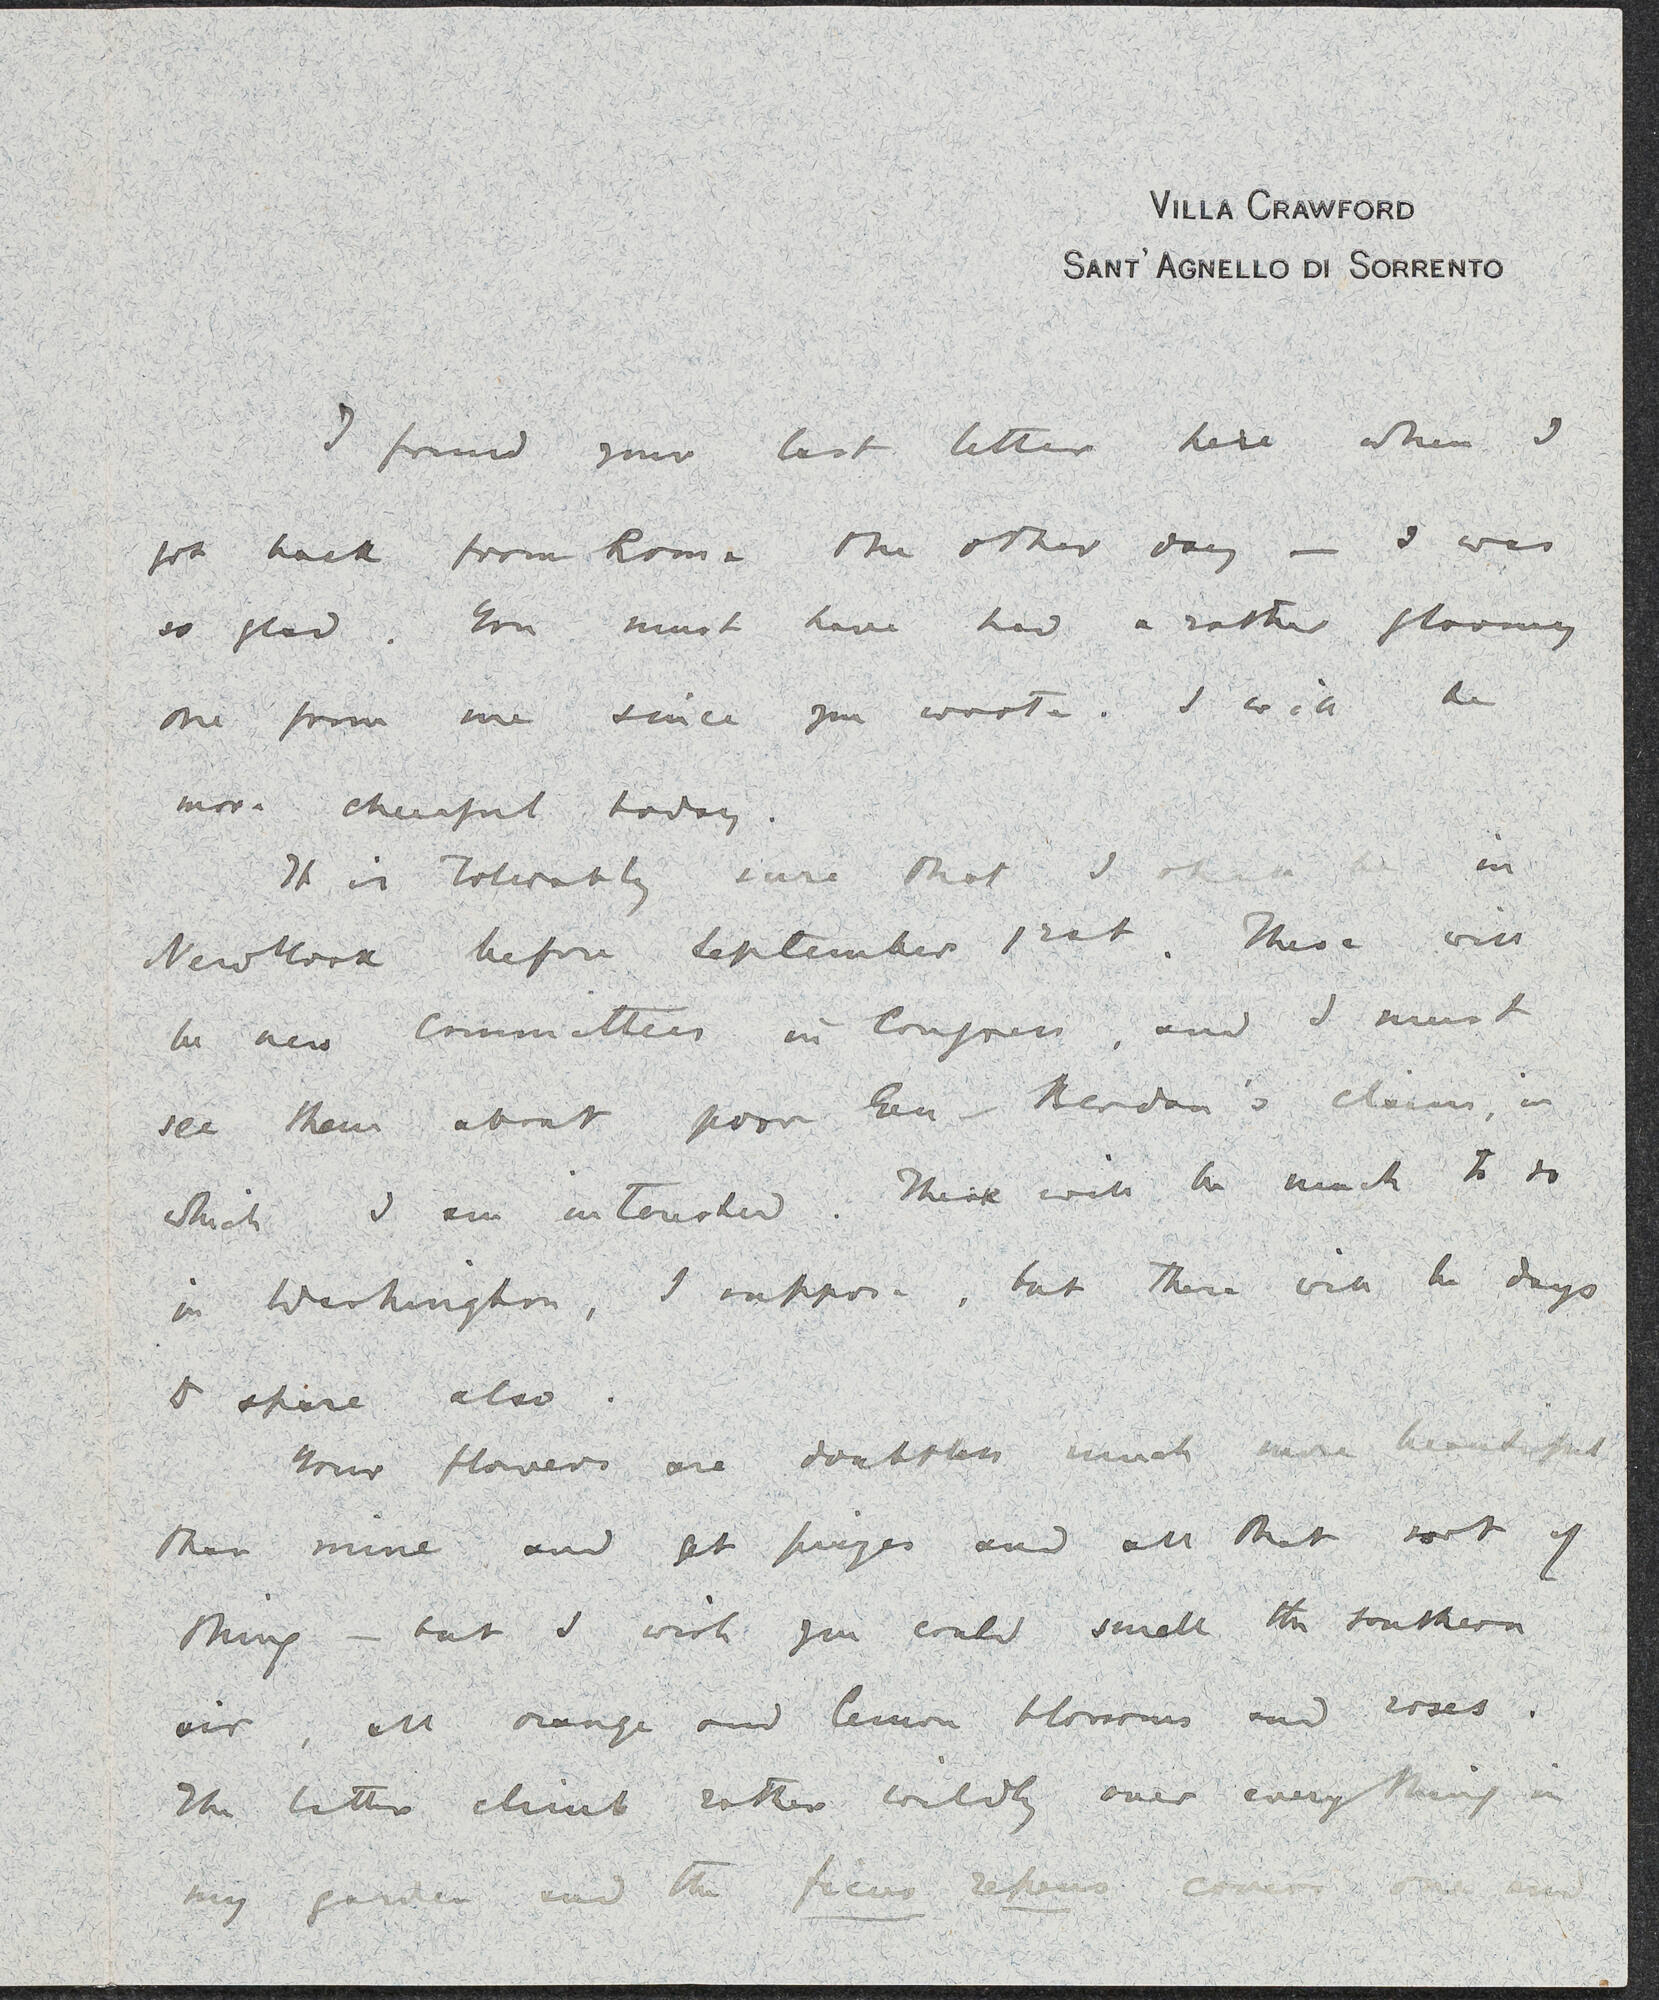 VILLA CRAWFORD
SANT' AGNELLO DI SORRENTO
I found your last letter here when I
got back from Rome the other day — I was
so glad. You must have had a rather gloomy
one from me since you wrote. I will be
more cheerful today.
It is tolerably sure that I shall be in
New York before September 1rst. There will
be new committees in Congress, and I must
see them about poor Gen- Berdan's claim, in
which I am interested. There will be much to do
in Washington, I suppose, but there will be days
to spare also.
Your flowers are doubtless much more beautiful
than mine and get prizes and all that sort of
thing — but I wish you could smell the southern
air, all orange and lemon blossoms and roses.
The latter climb rather wildly over everything in
my garden and the ficus repens covers one and